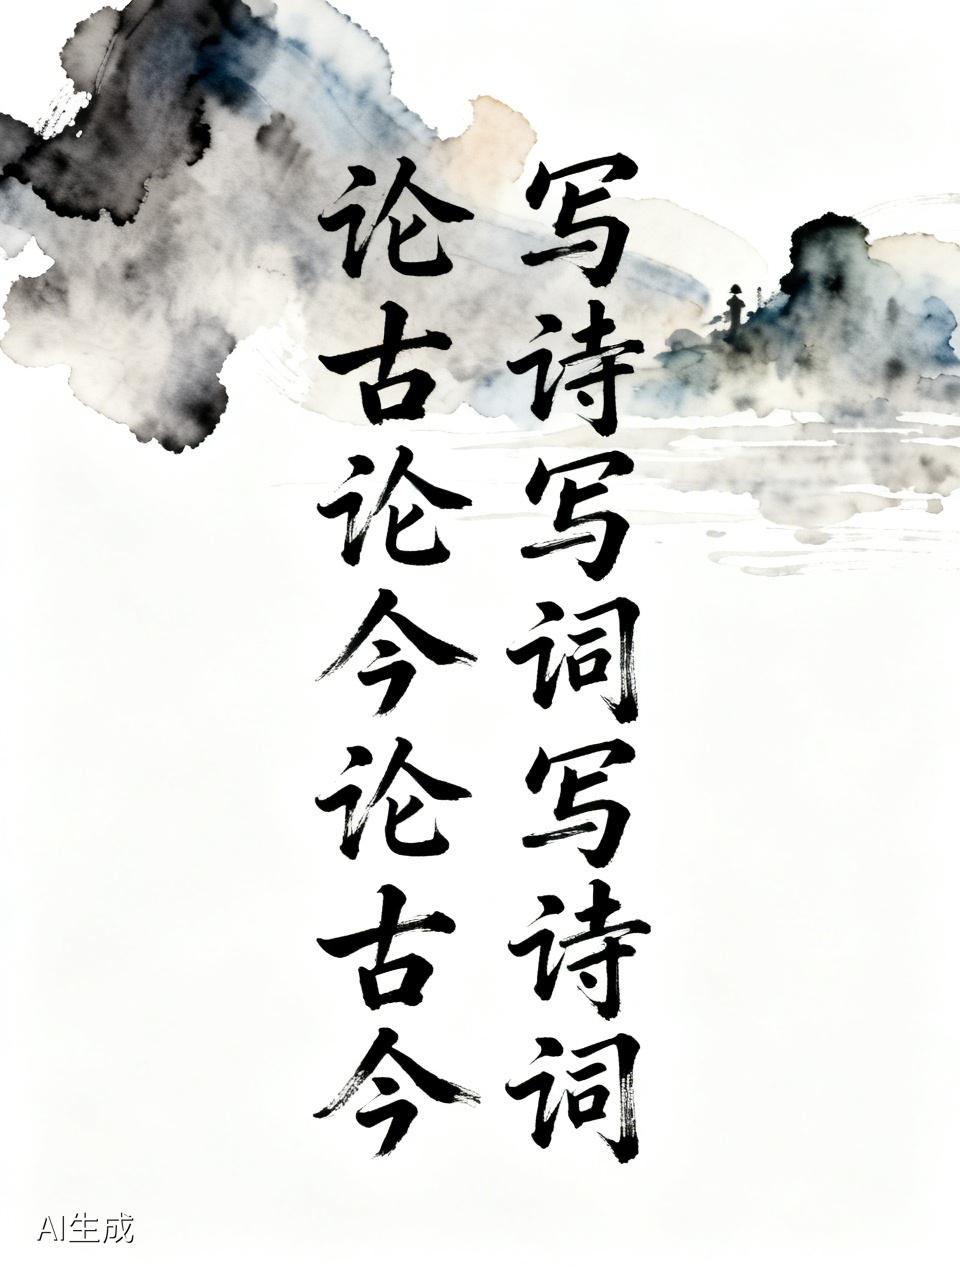 写诗写词写诗词
论古论今论古今
AI生成